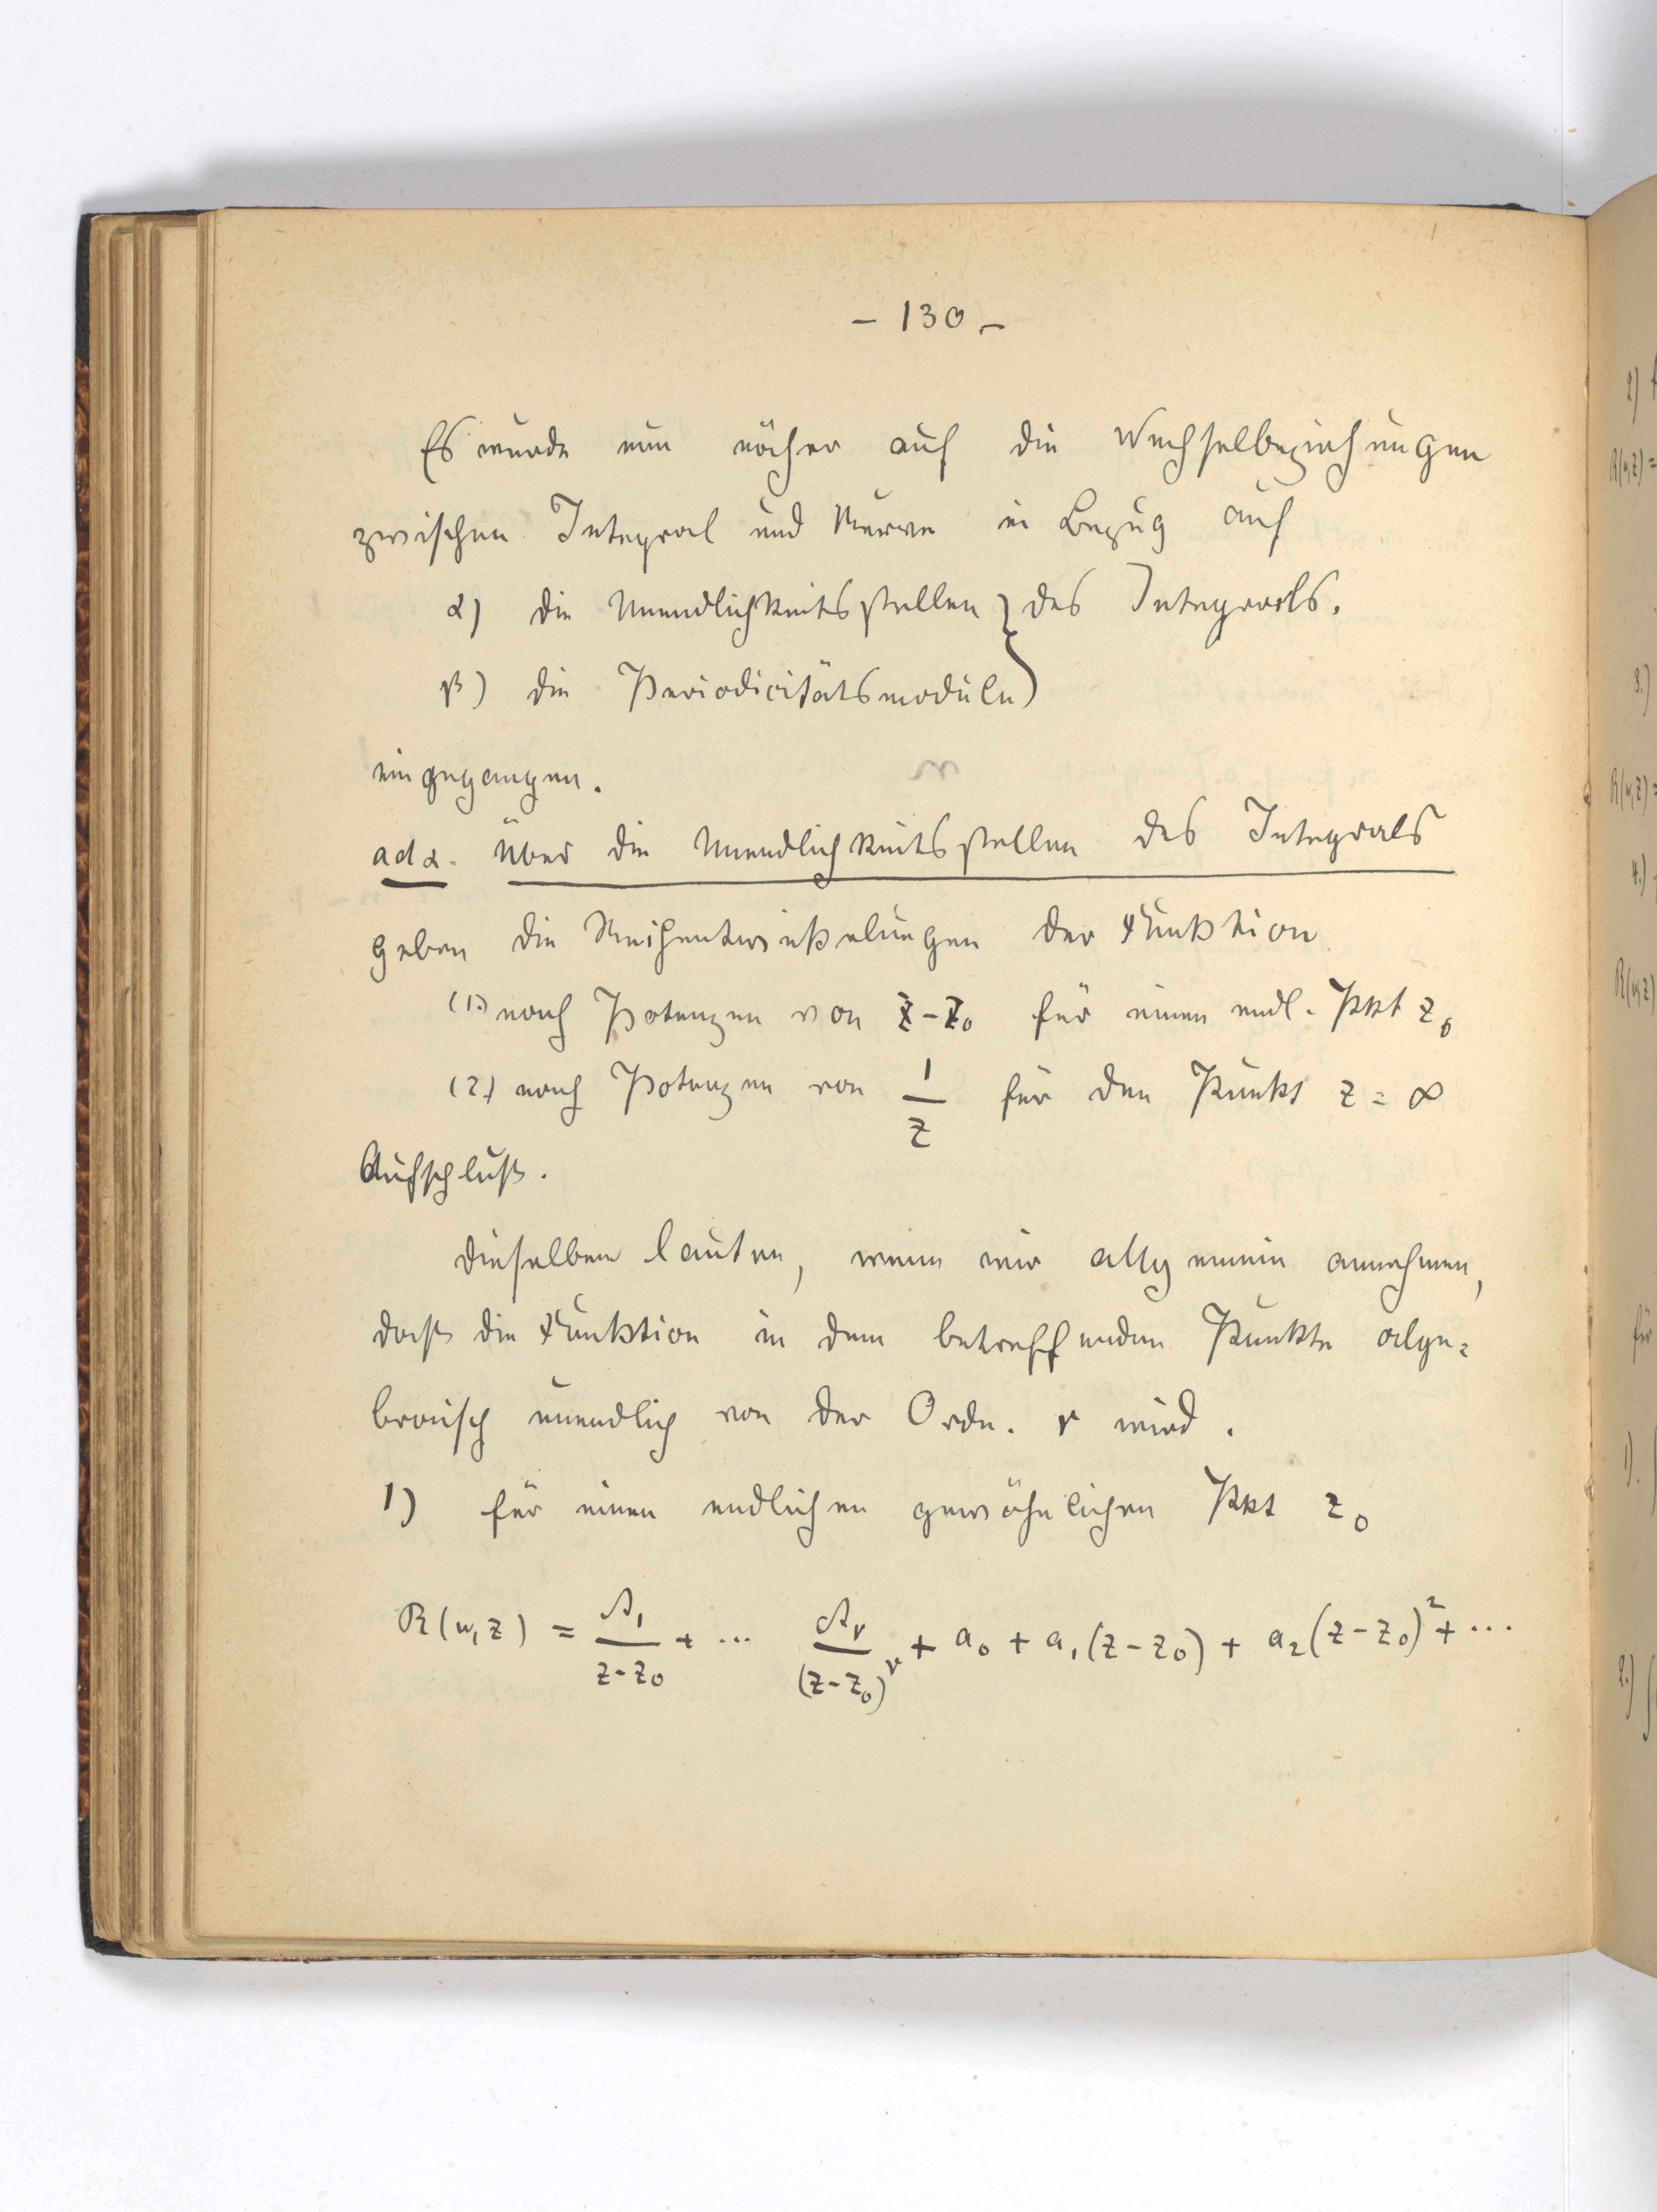 – 130 –
Es wurde nun näher auf die Wechselbeziehungen
zwischen Integral und Kurve in Bezug auf
α) die Unendlichkeitsstellen } des Integrals.
β) die Periodicitätsmoduln }
eingegangen.
ad α. Über die Unendlichkeitsstellen des Integrals
geben die Reihentwickelungen der Funktion
(1.) nach Potenzen von z - z₀ für einen endl. Pkt z₀
(2.) nach Potenzen von 1/z für den Punkt z = ∞
Aufschluß.
Dieselben lauten, wenn wir allgemein annehmen,
daß die Funktion in dem betreffenden Punkte alge=
braisch unendlich von der Ordn. ν wird.
1) für einen endlichen gewöhnlichen Pkt z₀
R(w, z) = A₁/(z - z₀) + ... A_ν/(z - z₀)^ν + a₀ + a₁(z - z₀) + a₂(z - z₀)² + ...
2)
R(w,z) =
3.)
R(w,z) =
4.)
R(w,z)
für
1).
2.) ∫